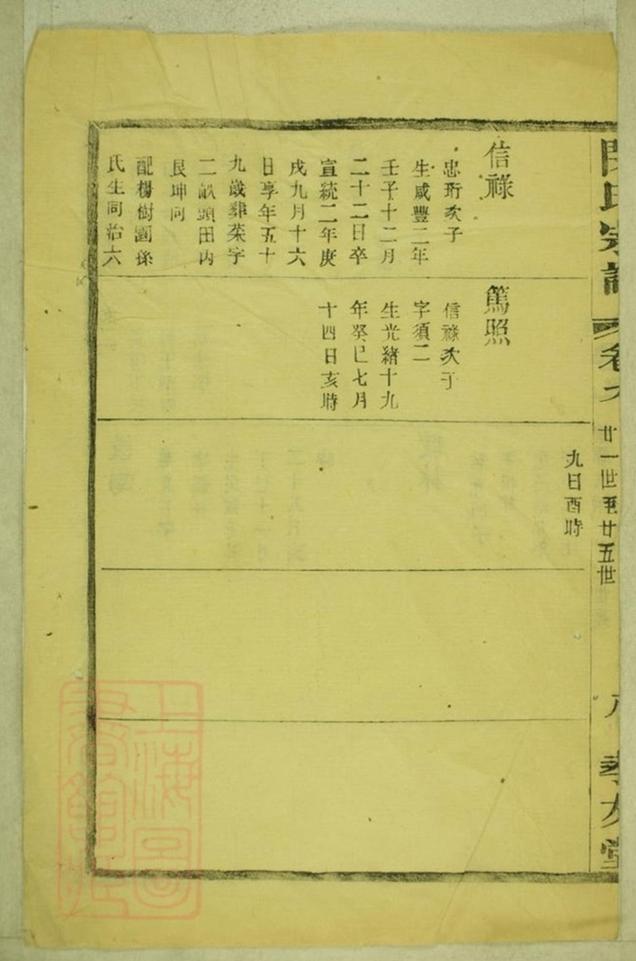 氏宗譜
卷六
廿一世至廿五世
八
孝友堂
信祿
忠珩次子
生咸豐二年
壬子十二月
二十二日卒
宣統二年庚
戌九月十六
日享年五十
九歲葬菜字
二畝頭田内
艮坤向
配楊樹園孫
氏生同治六
篤照
信祿次子
字須二
生光緒十九
年癸巳七月
十四日亥時
九日酉時
上海圖
書館藏